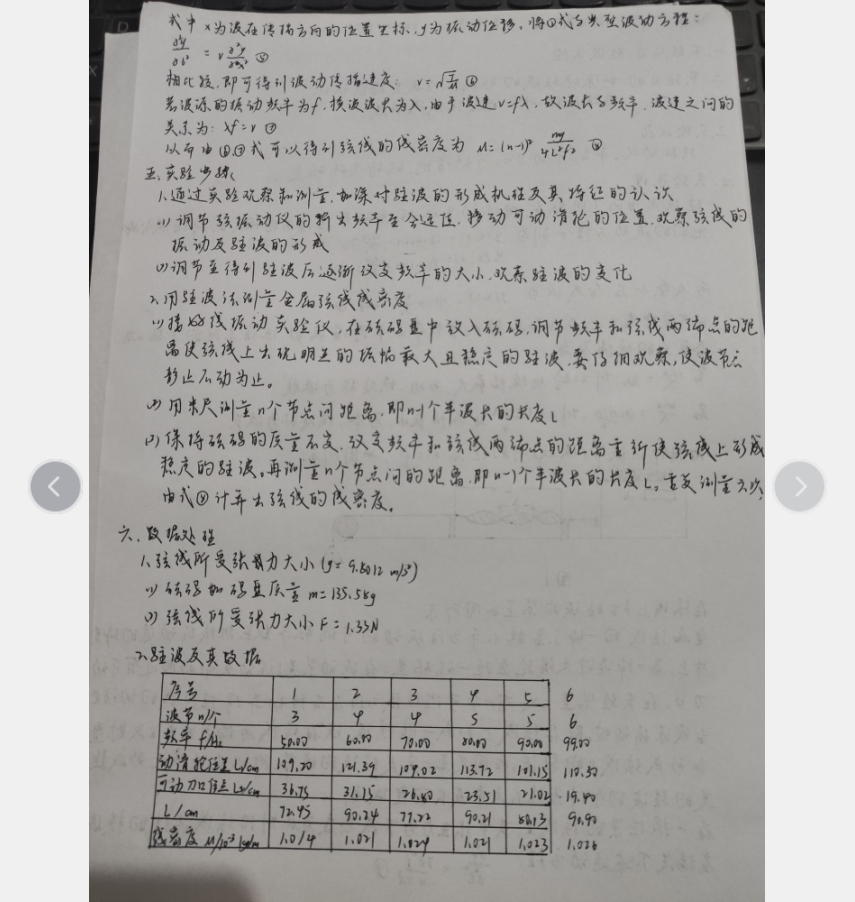 式中x为波在传播方向的位置坐标,y为振动位移,将①式与典型波动方程:
∂²y/∂t² = v ∂²y/∂x² ⑤
相比较,即可得到波动传播速度: v=√ ⑥
若波源的振动频率为f,横波波长为λ,由于波速v=fλ,故波长与频率、波速之间的
关系为: λf=v ⑦
从而由⑥⑦式可以得到弦线的线密度为 μ=(n-1)² mg/4L²f² ⑧
五、实验步骤
1.通过实验观察和测量,加深对驻波的形成机理及其特征的认识
(1)调节弦振动仪的输出频率至合适值,移动可动滑轮的位置,观察弦线的
振动及驻波的形成
(2)调节至得到驻波后逐渐改变频率的大小,观察驻波的变化
2.用驻波法测量金属弦线线密度
(1)接好线振动实验仪,在砝码盘中放入砝码,调节频率和弦线两端点的距
离使弦线上出现明显的振幅最大且稳定的驻波,要仔细观察,使波节
静止不动为止。
(2)用米尺测量n个节点间距离,即n-1个半波长的长度L
(3)保持砝码的质量不变,改变频率和弦线两端点的距离重新使弦线上形成
稳定的驻波。再测量n个节点间的距离,即n-1个半波长的长度L。重复测量六次
由式⑧计算出弦线的线密度。
六、数据处理
1.弦线所受张力大小(g=9.8012 m/s²)
(1)砝码加码盘质量m=135.58g
(2)弦线所受张力大小F=1.33N
2.驻波及其数据
序号 1 2 3 4 5 6
波节n/个 3 4 4 5 5 6
频率f/Hz 50.00 60.00 70.00 80.00 90.00 99.00
动滑轮位置L/cm 109.20 121.39 104.02 113.72 101.15 110.30
可动刀口位置L/cm 36.75 31.15 26.80 23.51 21.02 19.40
L/cm 72.45 90.24 77.22 90.21 80.13 90.90
线密度μ/10⁻³kg/m 1.014 1.021 1.024 1.021 1.023 1.026